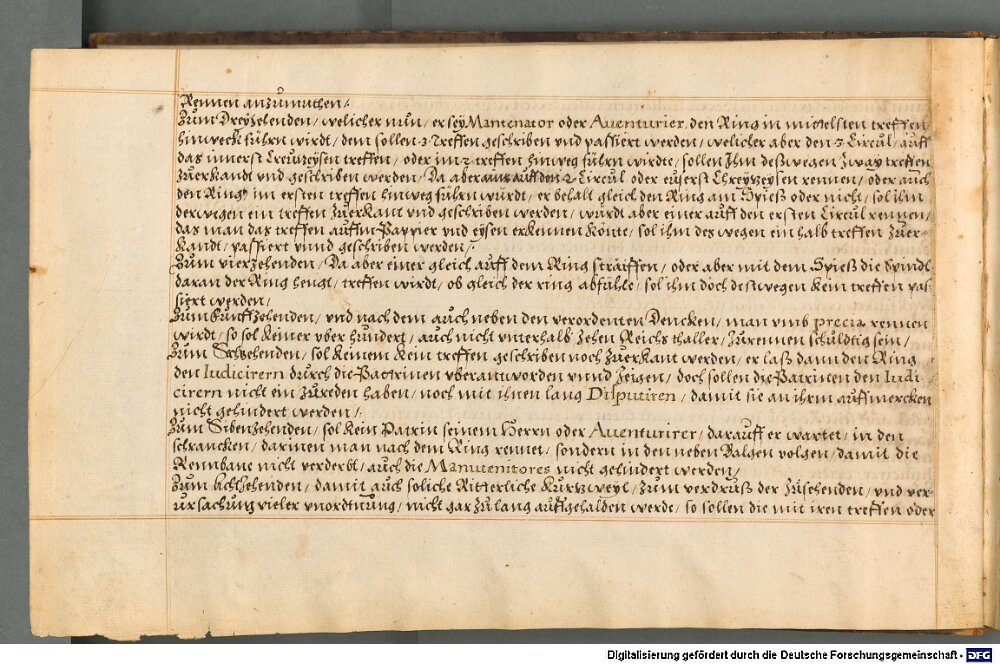 Rennen anzumuthen /
Zum Dreyzehenden / welicher nun / er sey Mantenator oder Aventurier, den Ring in mittelsten treffen /
hinweckh führn wirdt / dem sollen 3 Treffen geschriben und passiert werden / welicher aber den 3 Circul / auff
das innerst Creutzeysen treffen / oder im 2 treffen hinweg führn wirdte / sollen Ihm deßwegen zway treffen
zuerkandt vnd geschriben werden / Da aber auff den 2 Circul oder eüserst Chreytzeysen rennen / oder auch
den Ring / im ersten treffen hinweg führn würdt / er behalt gleich den Ring am Spieß oder nicht / sol ihm
derwegen ein treffen zuerkant vnd geschriben werden / würdt aber einer auff den ersten Circul rennen /
das man das treffen auffm Pappier vnd eysen erkennen könte / sol ihm des wegen ein halb treffen zuer=
kandt / passiert vnnd geschriben werden /
Zum vierzehenden / Da aber einer gleich auff dem Ring straiffen / oder aber mit dem Spieß die Spindl
daran der Ring hengt / treffen wirdt / ob gleich der ring abfühle / sol ihm doch deßwegen kein treffen pas=
siert werden /
Zum Fünffzehenden / vnd nach dem auch neben den verordenten Dencken / man vmb precia rennen
wirdt / so sol keiner vber hundert / auch nicht vnterhalb zehen Reichs thaller / zurennen schuldig sein /
Zum Sechzehenden / sol keinem kein treffen geschriben noch zuerkant werden / er laß dann den Ring
den Iudicirern durch die Patrinen vberantworden vnnd zeigen / doch sollen die Patrinen den Iudi=
cirern nicht ein zureden haben / noch mit ihnen lang Disputiren / damit sie an ihrm auffmercken
nicht gehindert werden /
Zum Sibenzehenden / sol kein Patrin seinem Herrn oder Aventurirer / darauff er wartet / in den
schrancken / darinen man nach dem Ring rennet / sondern in den neben Balgen volgen / damit die
Rennbane nicht verderbt / auch die Manutenitores nicht gehindert werden /
Zum Achtzehenden / damit auch soliche Ritterliche Kurtzweyl / zum verdruß der zusehenden / vnd ver=
ursachung vieler vnordnung / nicht gar zu lang auffgehalden werde / so sollen die mit iren treffen oder
Digitalisierung gefördert durch die Deutsche Forschungsgemeinschaft - DFG